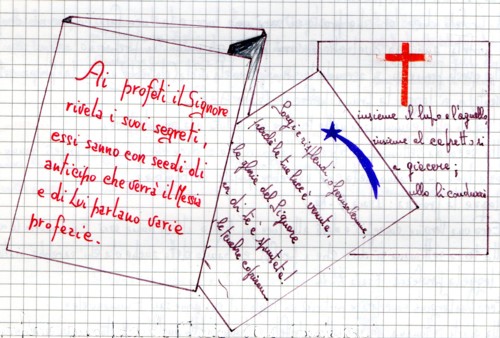 Ai profeti il Signore
rivela i suoi segreti,
essi sanno con secoli di
anticipo che verrà il Messia
e di Lui parlano varie
profezie.
Sorgi e risplendi, o Gerusalemme
perché la tua luce è venuta,
la gloria del Signore
di te è spuntata!
le tenebre
insieme il lupo e l'agnello
insieme al capretto si
a giacere;
ullo li condurrà